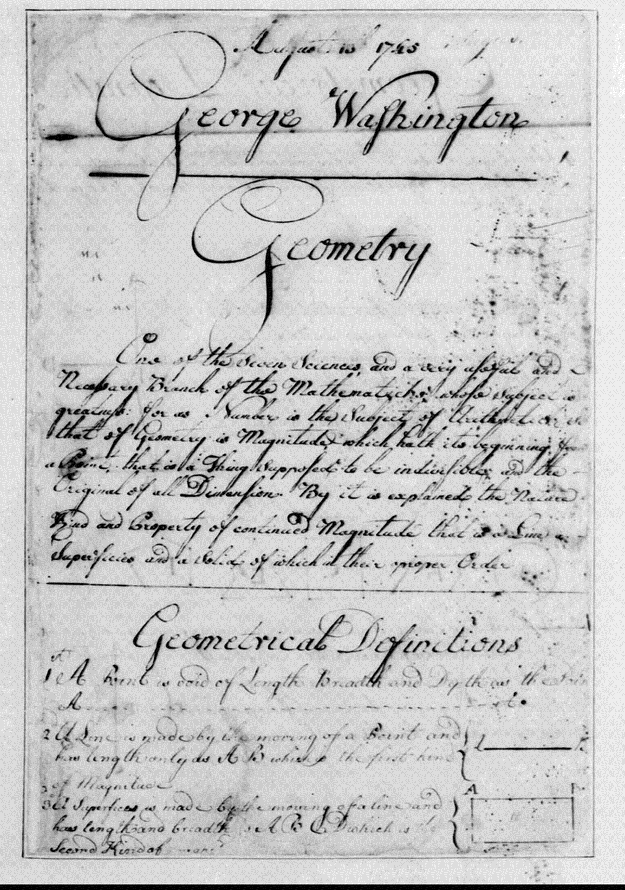 August 13 1745
George Washington
Geometry
One of the Seven Sciences, and a very useful and
Necessary Branch of the Mathematicks, whose subject is
greatness: for as Number is the Subject of Arithmetick so
that of Geometry is Magnitude, which hath its beginning
a Point, that is a Thing Supposed to be indivisible, and the
Original of all Dimension. By it is explained the Nature
Kind and Property of continued Magnitude that is a Line a
Superficies and a Solid of which in their proper Order
Geometrical Definitions
1st A Point is void of Length Breadth and Depth as the Point
A A.
2 A Line is made by the moving of a Point and
has length only as A B which is the first kind
of Magnitude
3 A Superficies is made by the moving of a line and
has length and breadth as A B C D which is the
Second Kind of
A